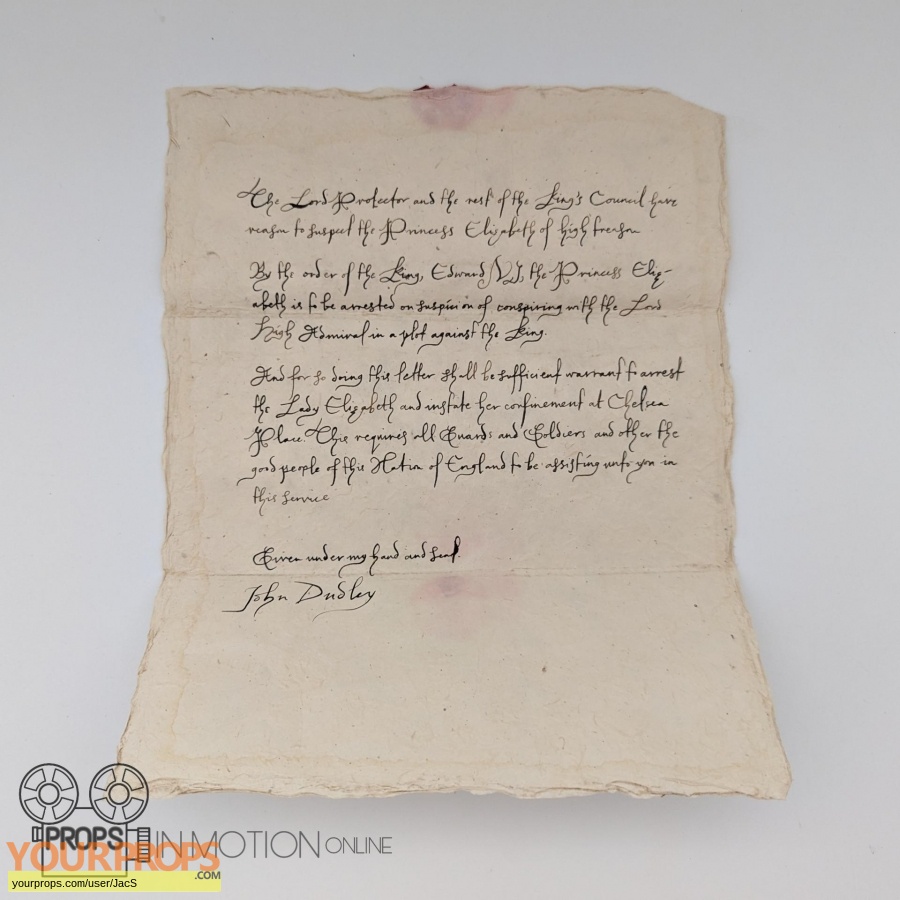 The Lord Protector and the rest of the King's Council have
reason to suspect the Princess Elizabeth of high treason
By the order of the King, Edward VI, the Princess Eliz-
abeth is to be arrested on suspicion of conspiring with the Lord
High Admiral in a plot against the King.
And for so doing this letter shall be sufficient warrant to arrest
the Lady Elizabeth and instate her confinement at Chelsea
Place. This requires all Guards and Soldiers and other the
good people of this Nation of England to be assisting unto you in
this service
Given under my hand and seal.
John Dudley
PROPS IN MOTION ONLINE
YOURPROPS.COM
yourprops.com/user/JacS